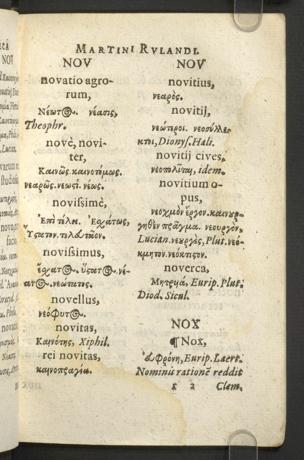 MARTINI RVLANDI.
NOV
novatio agro-
rum,
νέασις,
Theophr.
novè, novi-
ter,
Καινῶς. καινοτόμως.
νεαρῶς. νεωστὶ. νέως.
novissimè,
Ἐπὶ τέλει. Ἐσχάτως,
novissimus,
ἔσχατος. ὕστατος. νέ-
ατος. νεώτατος.
novellus,
νεόφυτος.
novitas,
Καινότης, Xiphil.
rei novitas,
καινοπραγία.
NOV
novitius,
νεαρός.
novitij,
νεώτεροι. νεοσύλλε-
κτοι, Dionys. Hali.
novitij cives,
νεοπολῖται, idem.
novitium o-
pus,
νεοχμὸν ἔργον. καινουρ-
γηθὲν πρᾶγμα. νεουργὸν,
Lucian. νεουργὸς, Plut. νεό-
κμητον. νεόκτιστον.
noverca,
Μητρυιά, Eurip. Plut.
Diod. Sicul.
NOX
¶ Nox,
Εὐφρόνη, Eurip. Laert.
Nominis rationẽ reddit
Clem.